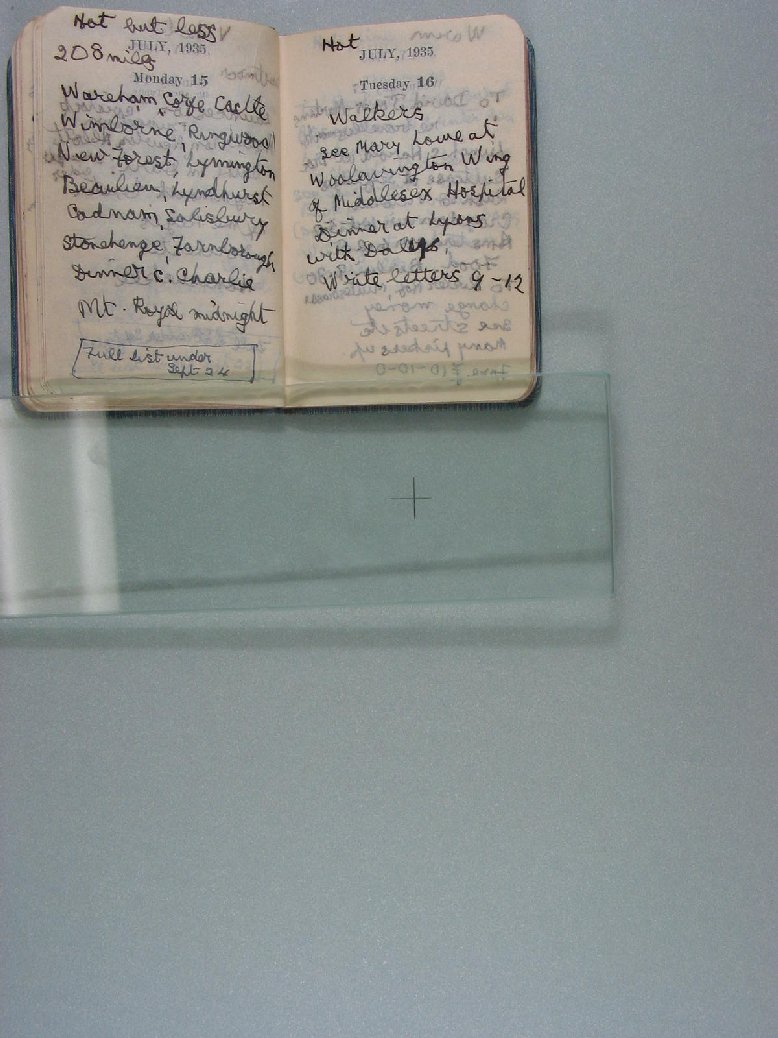 Hot but less
JULY, 1935
208 miles
Monday 15
Wareham, Corfe Castle
Wimborne, Ringwood
New Forest, Lymington
Beaulieu, Lyndhurst
Cadnam, Salisbury
Stonehenge, Farnborough
Dinner c. Charlie
Mt. Royal midnight
Full list under
Sept 24
Hot
JULY, 1935
Tuesday 16
Walkers
See Mary Lowe at
Woolavington Wing
of Middlesex Hospital
Dinner at Lyons
with Dalys
Write letters 9-12